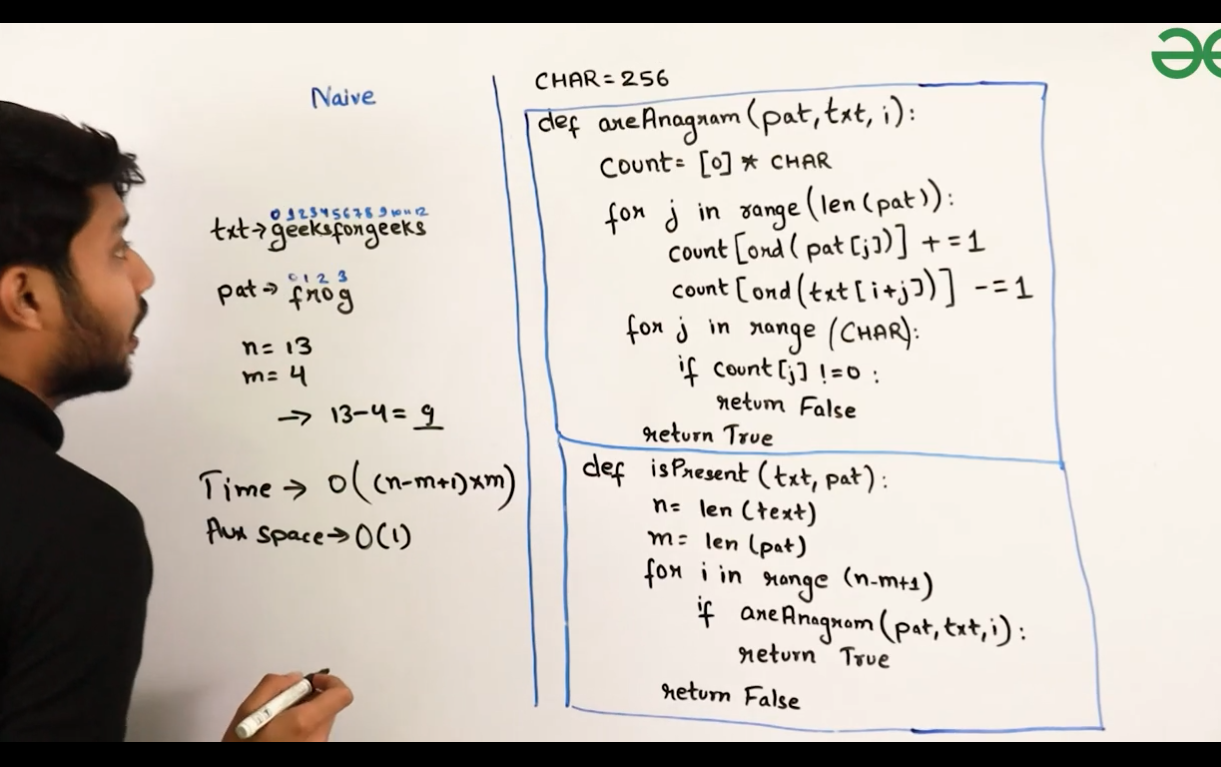 Naive
txt→geeksforgeeks
0 1 2 3
pat→ frog
n= 13
m= 4
→ 13-4= 9
Time → O((n-m+1)×m)
Aux space→O(1)
CHAR=256
def areAnagram(pat,txt,i):
Count= [0] * CHAR
for j in range(len(pat)):
count[ord(pat[j])] +=1
count[ord(txt[i+j])] -=1
for j in range(CHAR):
if count[j] !=0 :
return False
return True
def isPresent(txt, pat):
n= len(text)
m= len(pat)
for i in range (n-m+1)
if areAnagram(pat,txt,i):
return True
return False